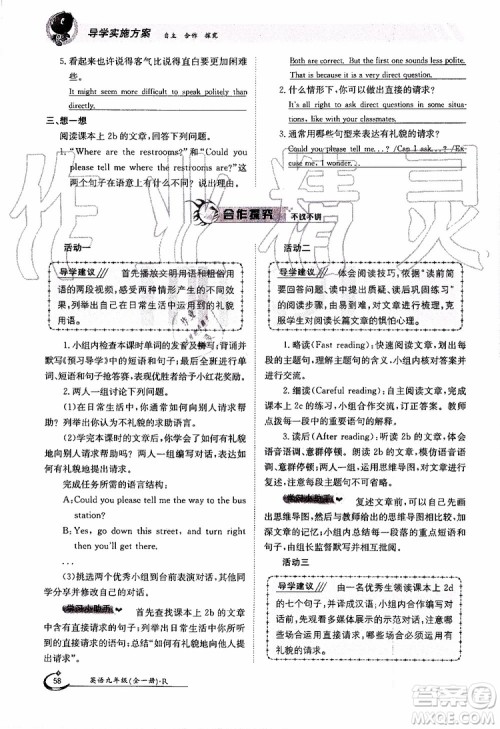 导学实施方案 自主 合作 探究
5. 看起来也许说得客气比说得直白要更困难一些。
It might seem more difficult to speak politely than to speak directly.
三、想一想
阅读课本上 2b 的文章,回答下列问题。
1. "Where are the restrooms?"和"Could you please tell me where the restrooms are?"这两个句子在语意上有什么不同?请说出理由。
Both are correct. But the first one sounds less polite. This is because it is a very direct question.
2. 什么情形下可以做出直接的请求?
It's all right to ask direct questions in some situations, like with your classmates.
3. 通常用哪些句型来表达有礼貌的请求?
Could you please tell me. . . ? /Can I ask. . . ? /Excuse me, I wonder. . .
合作探究 不议不讲
活动一
导学建议 首先播放文明用语和粗俗用语的两段视频,感受两种情形产生的不同效果,列举出自己在日常生活中所见到的礼貌用语。
1. 小组内检查本课时单词的发音及拼写;背诵并默写《预习导学》中的短语和句子;可以进行男女生单词、短语和句子抢答赛,优胜者给予小红花奖励。
2. 两人一组讨论下列问题。
(1)在日常生活中,你是如何向别人请求帮助的?
(2)学完本课时的文章后,你应该如何有礼貌地向别人请求帮助呢?两人一组对话。
完成任务所需的语言结构:
A: Could you please tell me the way to the bus station?
B: Yes, go down this street, and turn right then you'll get there.
…
(3)挑选两个优秀小组到台前展示,模仿秀。其他同学分享并给予掌声。
学习小助手 首先查找课本上 2b 的文章中的直接请求的语句;总结"如何有礼貌地向别人提出请求"。
活动二
导学建议 体会阅读技巧,按照"读前扫除障碍、读中回答问题、读后巩固练习"的阅读步骤,对文章进行梳理,克服学生对阅读长篇文章的惧怕心理。
1. 略读(Fast reading):快速阅读文章,找出每一段的主题句,理解主题句的含义。小组内核对答案并分享。
2. 细读(Careful reading):自主阅读文章,完成课本上 2c 的练习,小组合作分享并展示。教师点拨每一段的重要语句的理解。
3. 读后(After reading):听录音跟读 2b 的文章,体会语音语调、意群停顿。朗读 2b 的文章,注意语音语调、意群停顿。根据思维导图和关键词进行复述。
学习小助手 复述文章前,可以先画出思维导图,这样可以帮助理解并记忆文章,加深文章的印象。尽可能多地运用所学的短语和句子,由组长监督默写并批阅。
活动三
导学建议 由一名优秀生领读课本上 2d 的七个句子,并译成汉语;小组内合作仔细观察每个句子,写出更有礼貌的请求,并列举出可能在什么场合提出这样的请求。
58 英语九年级(全一册)·R
作业精灵